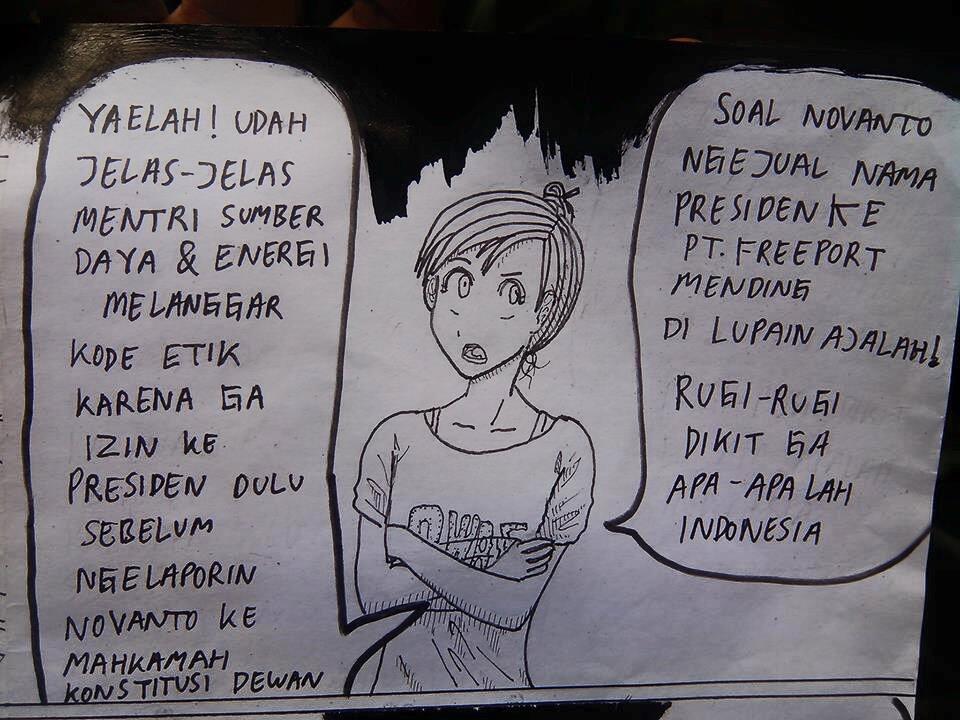 YAELAH! UDAH
JELAS-JELAS
MENTRI SUMBER
DAYA & ENERGI
MELANGGAR
KODE ETIK
KARENA GA
IZIN KE
PRESIDEN DULU
SEBELUM
NGELAPORIN
NOVANTO KE
MAHKAMAH
KONSTITUSI DEWAN
SOAL NOVANTO
NGEJUAL NAMA
PRESIDEN KE
PT. FREEPORT
MENDING
DI LUPAIN AJALAH!
RUGI-RUGI
DIKIT GA
APA-APA LAH
INDONESIA